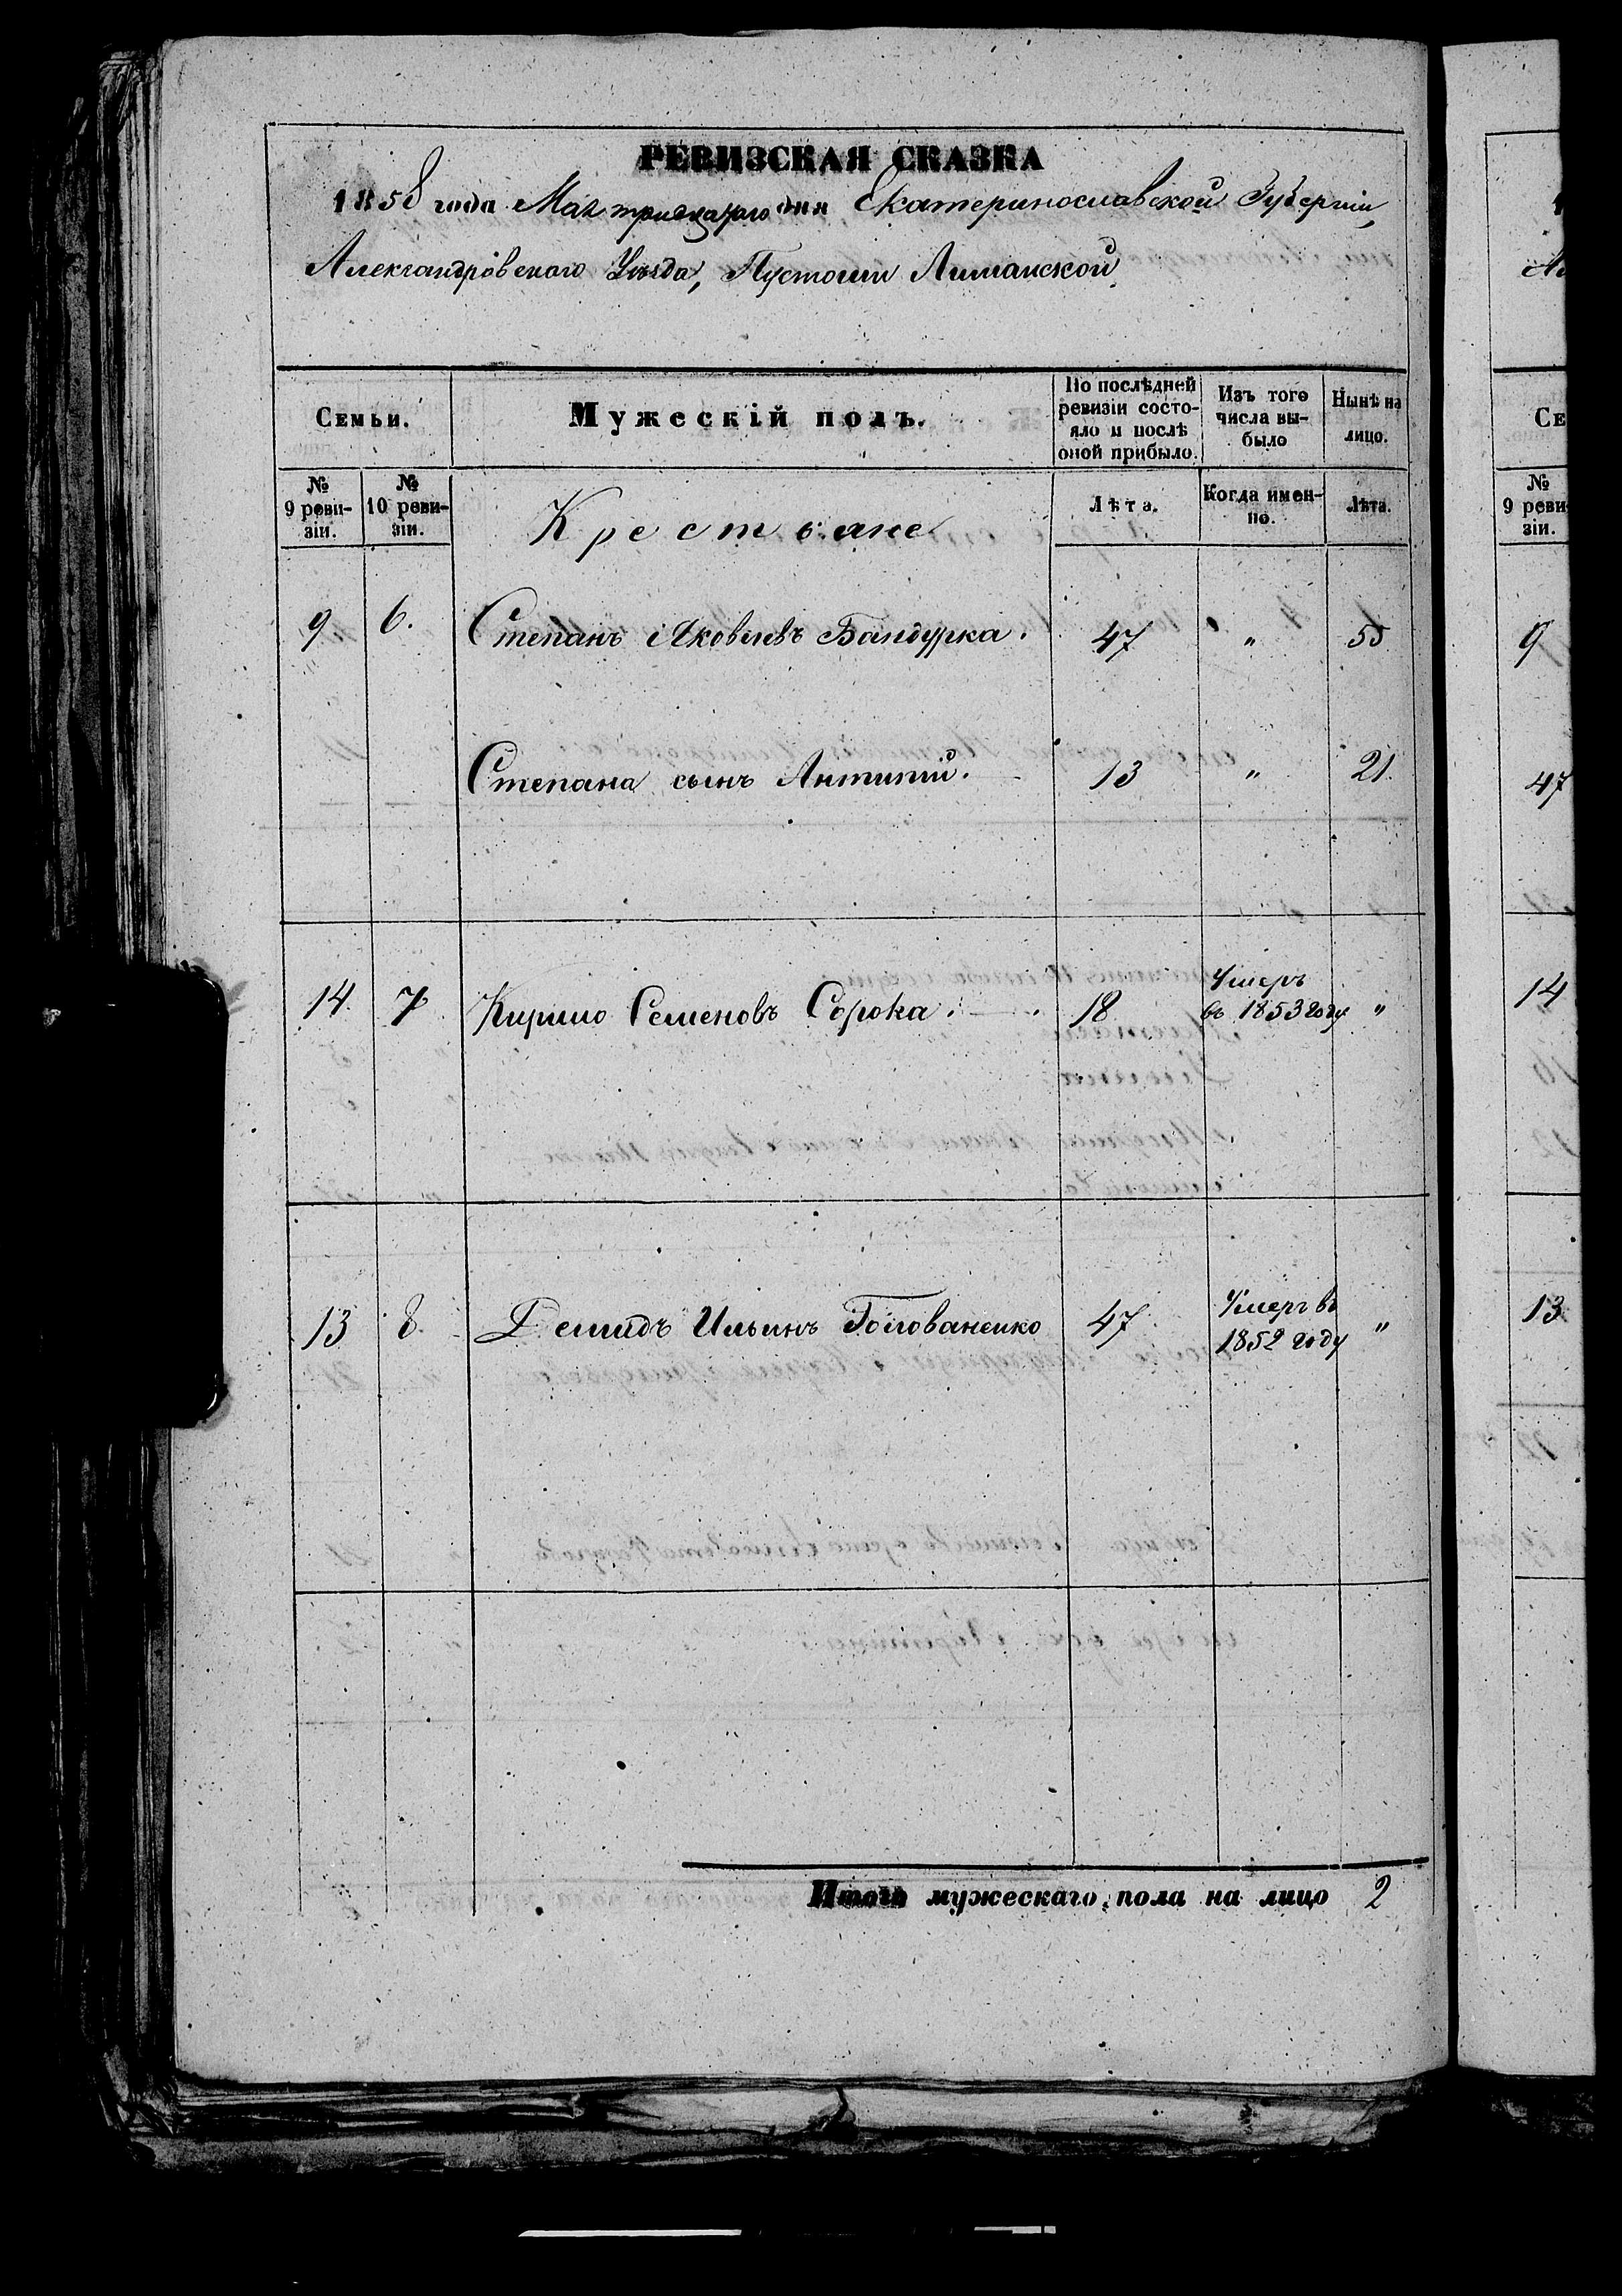 РЕВИЗСКАЯ СКАЗКА
1858 года Мая тридцатаго дня Екатеринославской Губерніи,
Александровскаго Уѣзда, Пустоши Лиманской
Семьи. Мужескій полъ. По послѣдней ревизіи состояло и послѣ оной прибыло. Изъ того числа выбыло Нынѣ на лицо.
№ 9 ревизіи. № 10 ревизіи. Крестьяне Лѣта. Когда именно. Лѣта.
9 6. Степанъ Яковлевъ Бандурка. 47 " 55
Степана сынъ Антипій. 13 " 21.
14 7 Кирило Семеновъ Сорока. 18 Умеръ въ 1853 году "
13 8. Демидъ Ильинъ Голованенко 47 Умеръ въ 1852 году "
Итого мужескаго пола на лицо 2
№
9 реви
зіи.
9
47
14
13